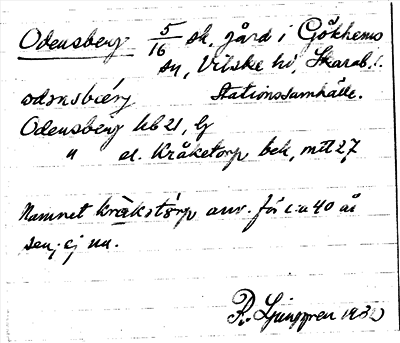 Odensberg 5/16 sk. gård i Gökhems
sn, Vilske hd, Skarab. l.
odænsbærj Stationssamhälle.
Odensberg Ub 21, G
" el. Kråketorp bek, mtl 27
Namnet kråkstorp anv. för c:a 40 år
sen; ej nu.
R. Ljunggren 1930